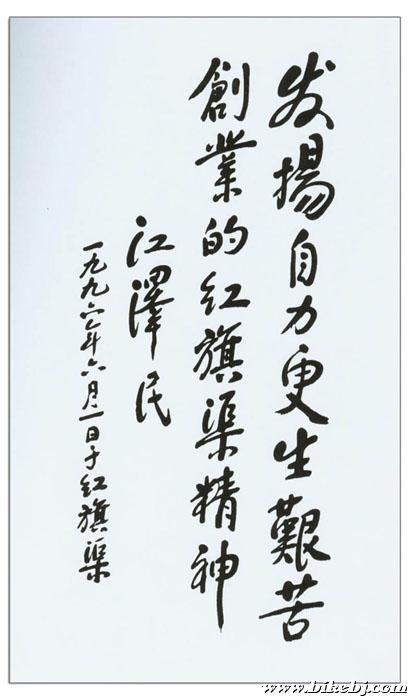 发揚自力更生艱苦
創業的红旗渠精神
江澤民
一九九六年六月一日于红旗渠
www.bikebj.com